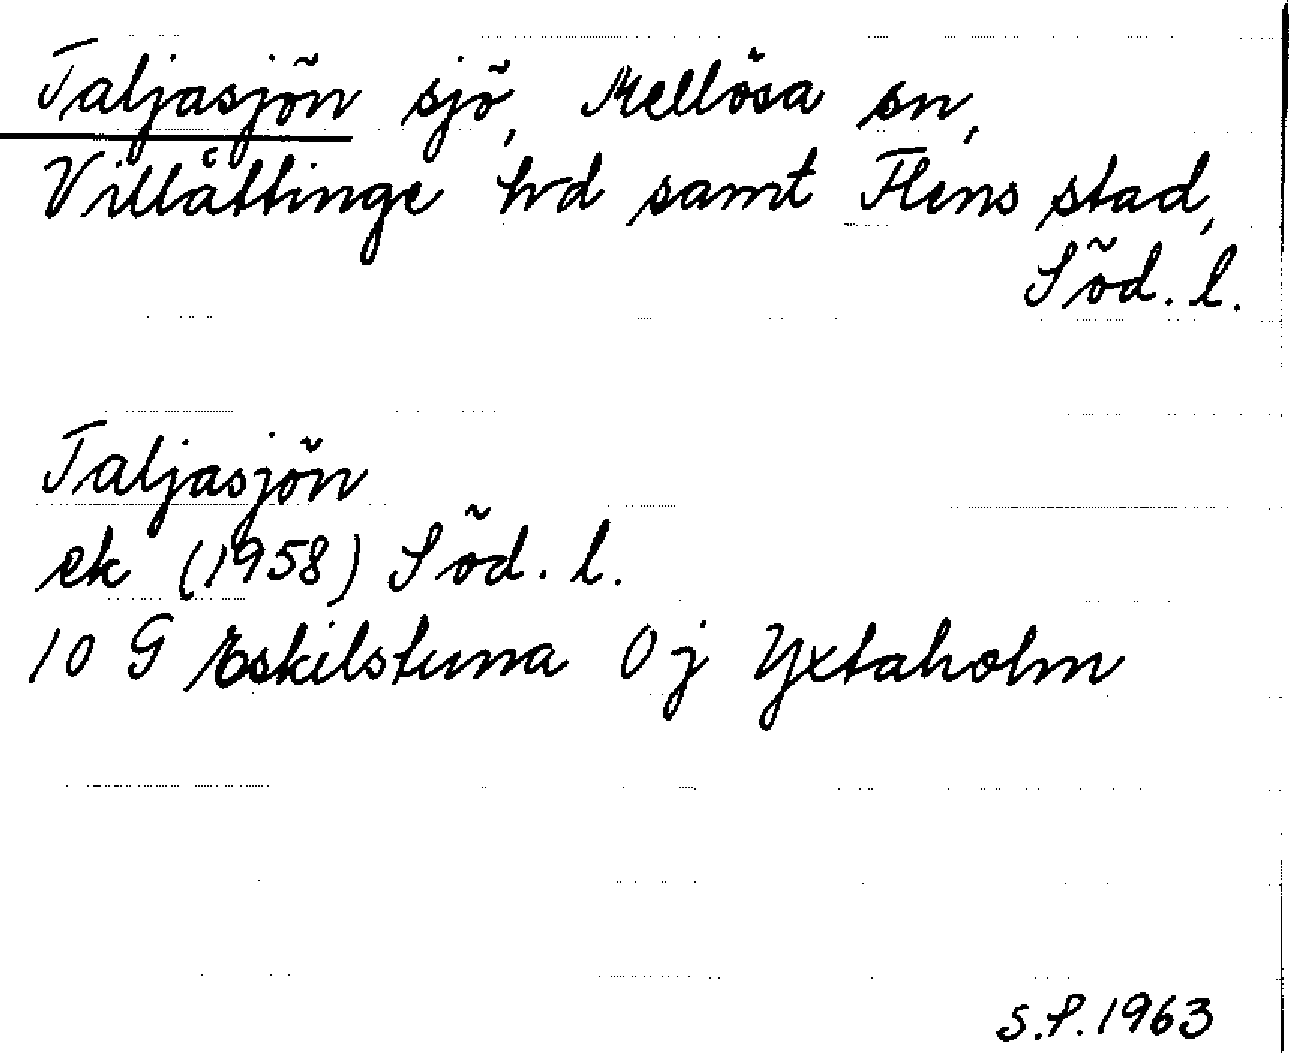 Taljasjön sjö, Mellösa sn,
Villåttinge hd samt Flens stad,
Söd. l.
Taljasjön
ek (1958) Söd. l.
10 G Eskilstuna 0 j Yxtaholm
S.P. 1963